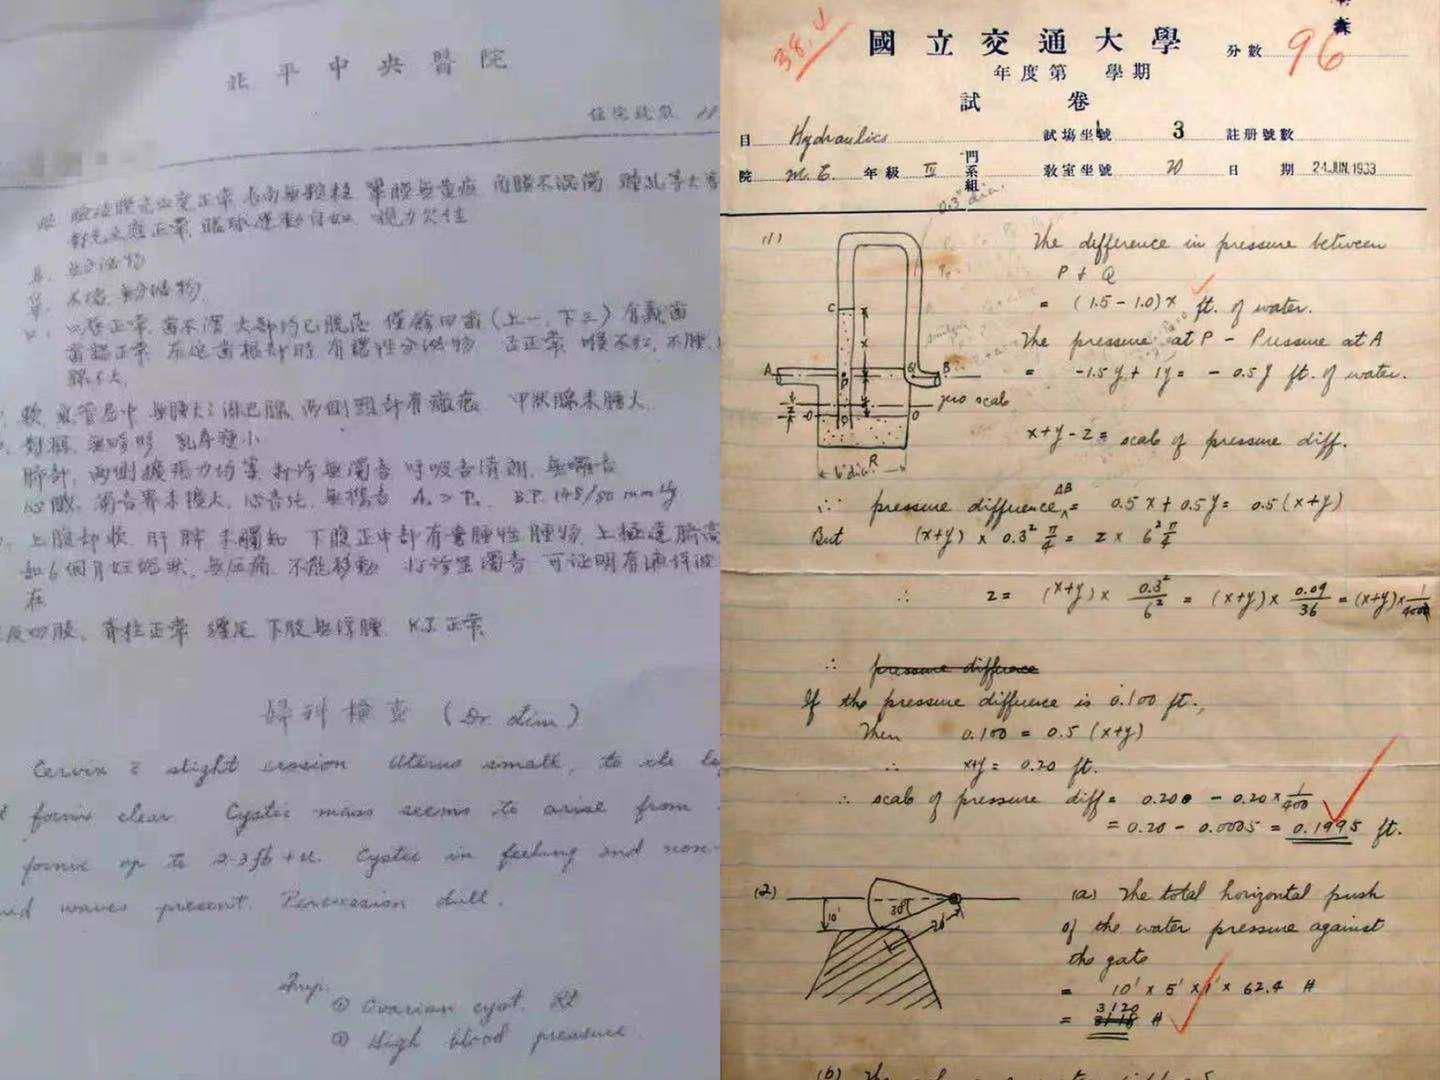 北平中央醫院
住院號數
眼 瞼結膜充血度正常,表面無顆粒 鞏膜無黃疸 角膜不混濁 瞳孔等大
對光反應正常 眼球運動自如 視力欠佳
鼻. 無分泌物
耳. 不壟,無分泌物
口. 口唇正常. 齒不潔 大部均已脫落 僅餘四齒(上一,下三) 有義齒
齒齦正常 齒根部時有膿性分泌物 舌正常 喉不紅,不腫,
腺不大.
軟,氣管居中 無腫大之淋巴腺,兩側頸部有瘢痕 甲狀腺未腫大.
對稱,無畸形 乳房種小
肺部, 兩側擴張力均等 打診無濁音 呼吸音清朗, 無囉音
心臟, 濁音界未擴大, 心音純, 無雜音 A₂ > P₂ B.P. 148/80 mm Hg
上腹部軟. 肝脾未觸知 下腹正中部有囊腫性腫物,上極達臍高
如6個月妊娠狀, 無压痛 不能移動 打診呈濁音 可証明有液体波
在
四肢, 脊柱正常 纏足 下肢無浮腫. K.J. 正常
婦科檢查 (Dr. Lim)
Cervix c̄ slight erosion Uterus small, to the
fornix clear. Cystic mass seems to arise from
fornix up to 2-3 fb + u. Cystic in feeling and non-
waves present. Percussion dull.
Imp.
① Ovarian cyst. Rt
② High blood pressure.
38.↓
國立交通大學
分數 96
年度第 學期
試卷
目 Hydraulics 試場坐號 3 註册號數
院 M. E. 年級 IV 門系組 教室坐號 20 日期 24 JUN. 1933
0.3" dia.
(1)
The difference in pressure between
P & Q
= (1.5 - 1.0) x ft. of water.
C
x
The pressure at P - Pressure at A
A P Q B
= -1.5 y + 1y = - 0.5 y ft. of water.
zero scale
0 0
x+y-z = scale of pressure diff.
R
6" dia.
∴ pressure difference AB = 0.5 x + 0.5 y = 0.5 (x+y)
But (x+y) x 0.3² π/4 = z x 6² π/4
∴ z = (x+y) x 0.3²/6² = (x+y) x 0.09/36 = (x+y) x 1/400
∴ pressure difference
If the pressure difference is 0.100 ft.,
Then 0.100 = 0.5 (x+y)
∴ x+y = 0.20 ft.
∴ scale of pressure diff = 0.200 - 0.20 x 1/400
= 0.20 - 0.0005 = 0.1995 ft.
(2)
10'
30°
20'
(a) The total horizontal push
of the water pressure against
the gate
= 10' x 5' x 1' x 62.4 #
= 3120 #
(b) The